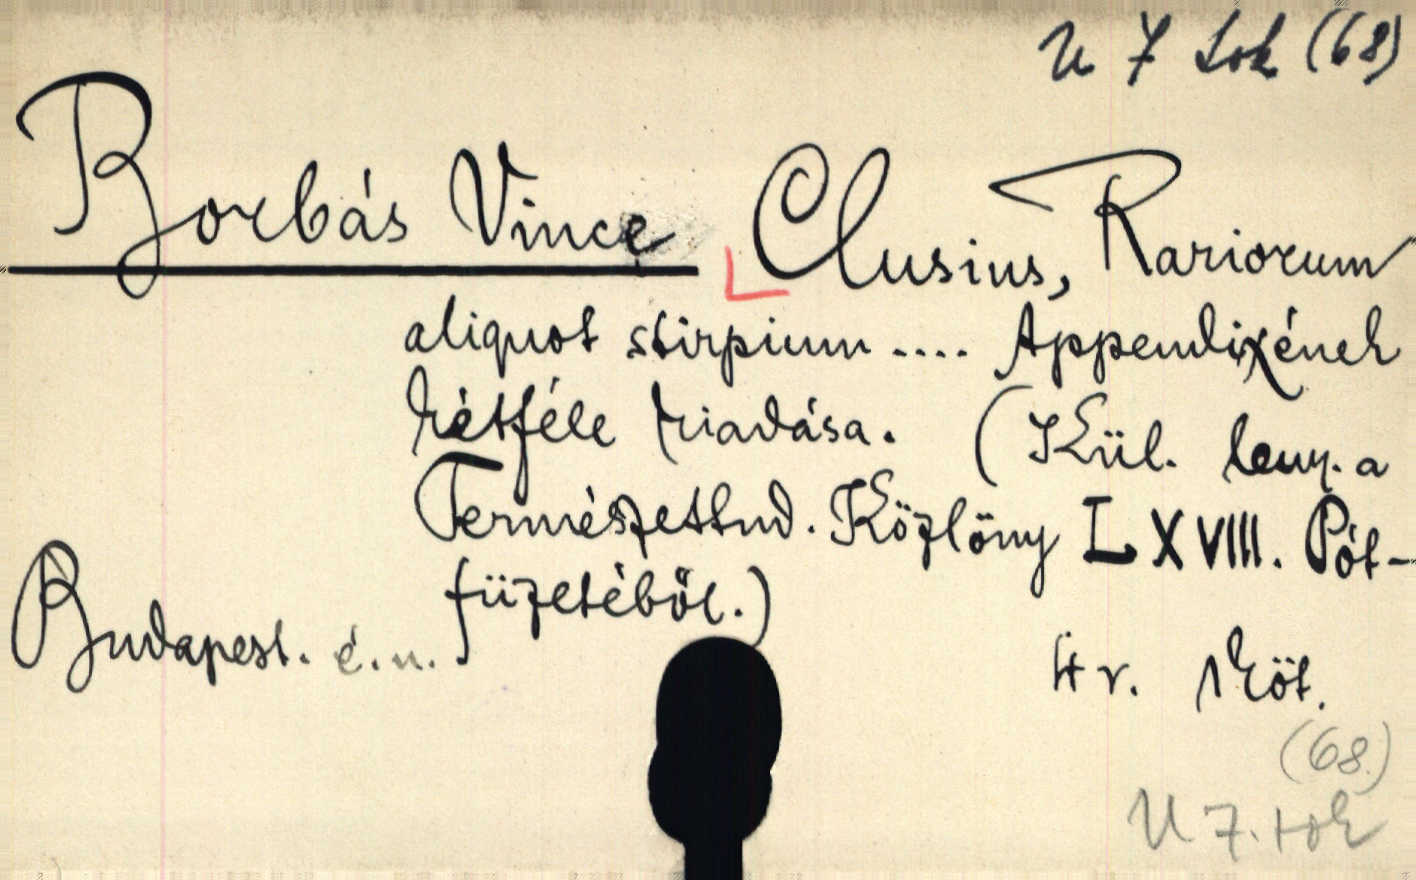 U 7 tok (68)
Borbás Vince Clusius, Rariorum
aliquot stirpium .... Appendixének
kétféle kiadása. (Kül. leny. a
Természettud. Közlöny LXVIII. Pót-
füzetéből.)
Budapest. é.n.
4r. Köt.
(68.)
U 7. tok